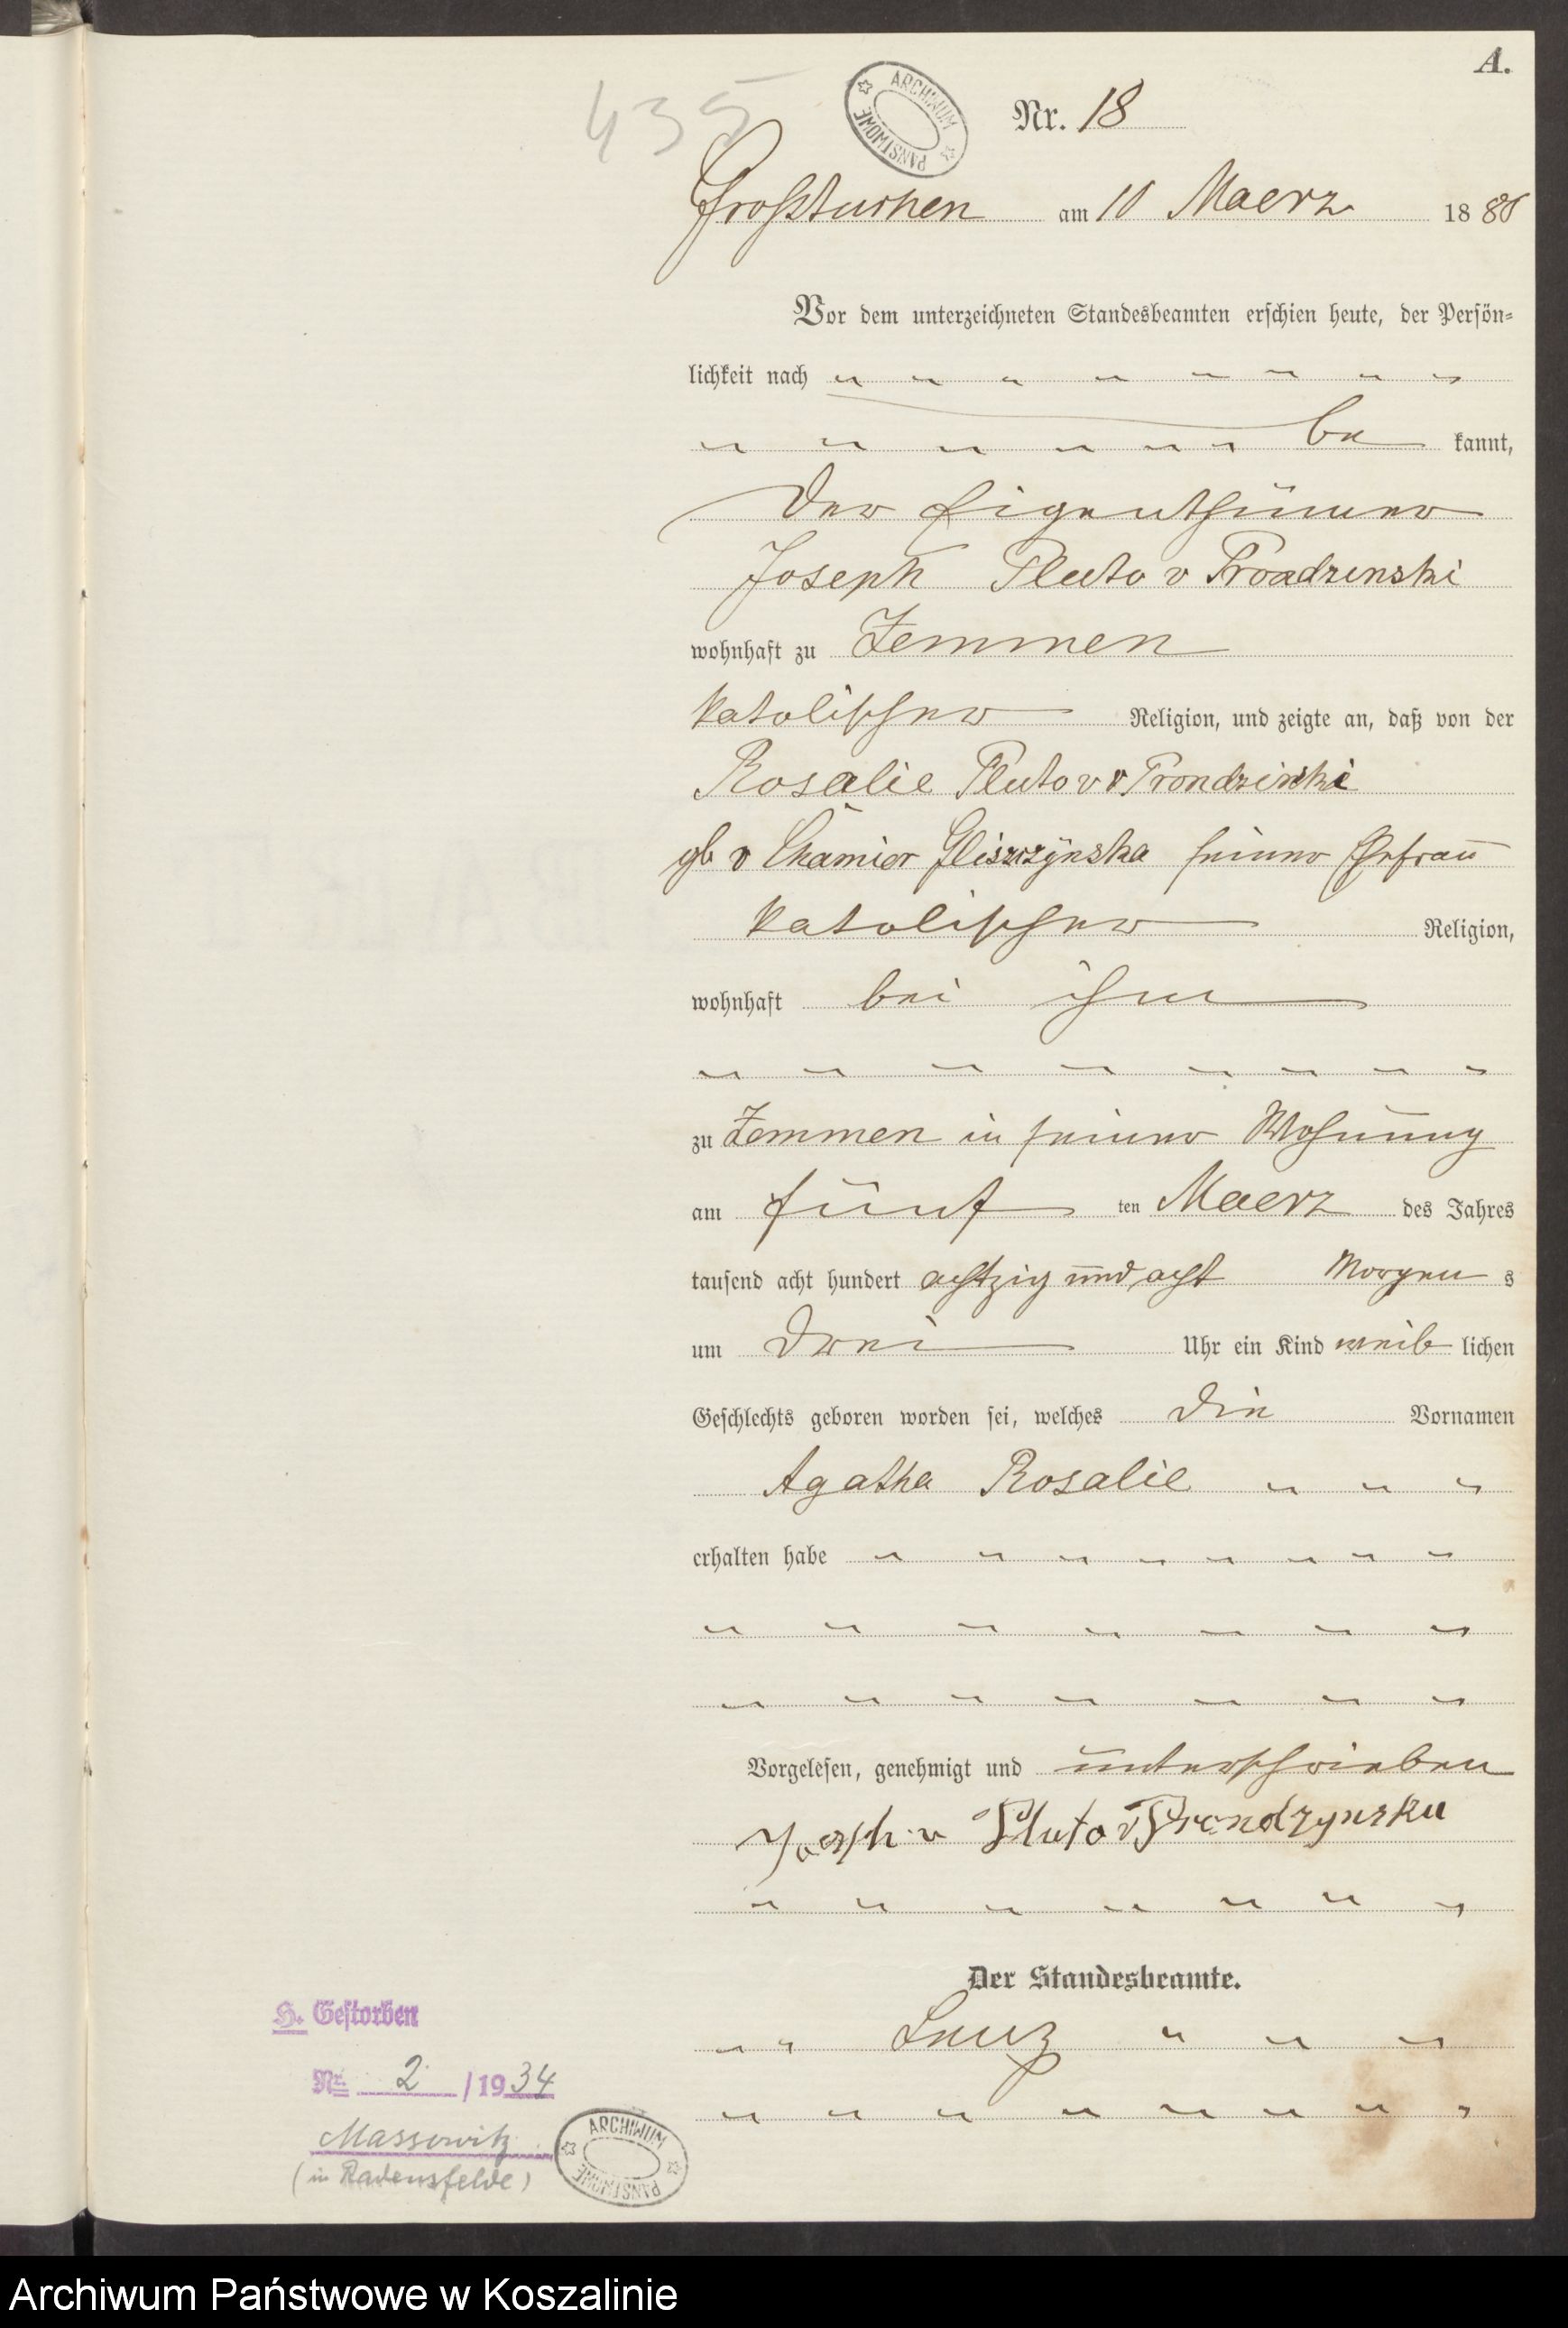 A.
435
ARCHIWUM PAŃSTWOWE
Nr. 18
Großtuchen am 10 Maerz 1888
Vor dem unterzeichneten Standesbeamten erschien heute, der Persön-
lichkeit nach
be kannt,
der Eigenthümer
Joseph Pluto v Prondzinski
wohnhaft zu Zemmen
katolischer Religion, und zeigte an, daß von der
Rosalie Pluto v Prondzinski
gb v Chamier Gliszczynska seiner Ehefrau
katolischer Religion,
wohnhaft bei ihm
zu Zemmen in seiner Wohnung
am fünf ten Maerz des Jahres
tausend acht hundert achtzig und acht Morgen s
um drei Uhr ein Kind weib lichen
Geschlechts geboren worden sei, welches die Vornamen
Agatha Rosalie
erhalten habe
Vorgelesen, genehmigt und unterschrieben
v Pluto v Prondzynski
Der Standesbeamte.
Lenz
H. Gestorben
Nr. 2 / 1934
Massowitz
(in Radensfelde)
ARCHIWUM PAŃSTWOWE
Archiwum Państwowe w Koszalinie